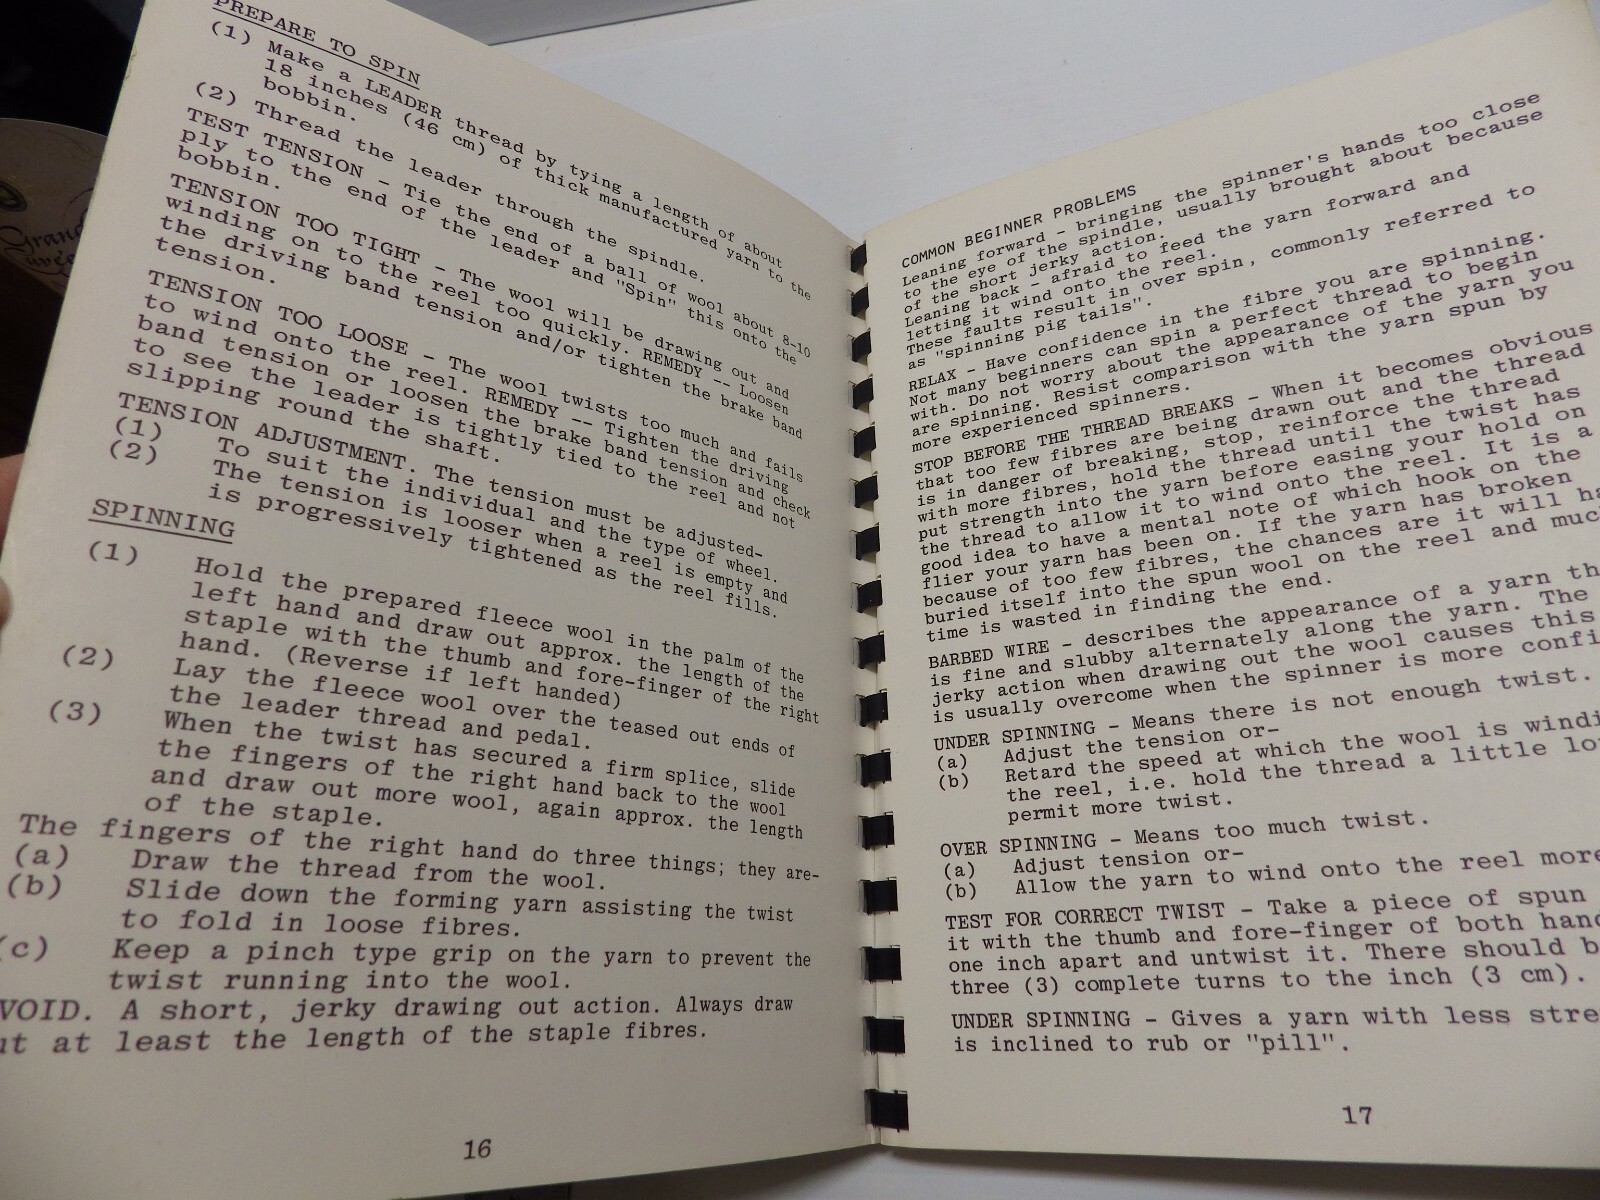 PREPARE TO SPIN
(1) Make a LEADER thread by tying a length of about
18 inches (46 cm) of thick manufactured yarn to the
bobbin.
(2) Thread the leader through the spindle.
TEST TENSION - Tie the end of a ball of wool about 8-10
ply to the end of the leader and "Spin" this onto the
bobbin.
TENSION TOO TIGHT - The wool will be drawing out and
winding on to the reel too quickly. REMEDY -- Loosen
the driving band tension and/or tighten the brake band
tension.
TENSION TOO LOOSE - The wool twists too much and fails
to wind onto the reel. REMEDY -- Tighten the driving
band tension or loosen the brake band tension and check
to see the leader is tightly tied to the reel and not
slipping round the shaft.
TENSION ADJUSTMENT. The tension must be adjusted-
(1) To suit the individual and the type of wheel.
(2) The tension is looser when a reel is empty and
is progressively tightened as the reel fills.
SPINNING
(1) Hold the prepared fleece wool in the palm of the
left hand and draw out approx. the length of the
staple with the thumb and fore-finger of the right
hand. (Reverse if left handed)
(2) Lay the fleece wool over the teased out ends of
the leader thread and pedal.
(3) When the twist has secured a firm splice, slide
the fingers of the right hand back to the wool
and draw out more wool, again approx. the length
of the staple.
The fingers of the right hand do three things; they are-
(a) Draw the thread from the wool.
(b) Slide down the forming yarn assisting the twist
to fold in loose fibres.
(c) Keep a pinch type grip on the yarn to prevent the
twist running into the wool.
VOID. A short, jerky drawing out action. Always draw
ut at least the length of the staple fibres.
16
COMMON BEGINNER PROBLEMS
Leaning forward - bringing the spinner's hands too close
to the eye of the spindle, usually brought about because
of the short jerky action.
Leaning back - afraid to feed the yarn forward and
letting it wind onto the reel.
These faults result in over spin, commonly referred to
as "spinning pig tails".
RELAX - Have confidence in the fibre you are spinning.
Not many beginners can spin a perfect thread to begin
with. Do not worry about the appearance of the yarn you
are spinning. Resist comparison with the yarn spun by
more experienced spinners.
STOP BEFORE THE THREAD BREAKS - When it becomes obvious
that too few fibres are being drawn out and the thread
is in danger of breaking, stop, reinforce the thread
with more fibres, hold the thread until the twist has
put strength into the yarn before easing your hold on
the thread to allow it to wind onto the reel. It is a
good idea to have a mental note of which hook on the
flier your yarn has been on. If the yarn has broken
because of too few fibres, the chances are it will ha
buried itself into the spun wool on the reel and muc
time is wasted in finding the end.
BARBED WIRE - describes the appearance of a yarn th
is fine and slubby alternately along the yarn. The
jerky action when drawing out the wool causes this
is usually overcome when the spinner is more confi
UNDER SPINNING - Means there is not enough twist.
(a) Adjust the tension or-
(b) Retard the speed at which the wool is windi
the reel, i.e. hold the thread a little lo
permit more twist.
OVER SPINNING - Means too much twist.
(a) Adjust tension or-
(b) Allow the yarn to wind onto the reel more
TEST FOR CORRECT TWIST - Take a piece of spun
it with the thumb and fore-finger of both hand
one inch apart and untwist it. There should b
three (3) complete turns to the inch (3 cm).
UNDER SPINNING - Gives a yarn with less stre
is inclined to rub or "pill".
17